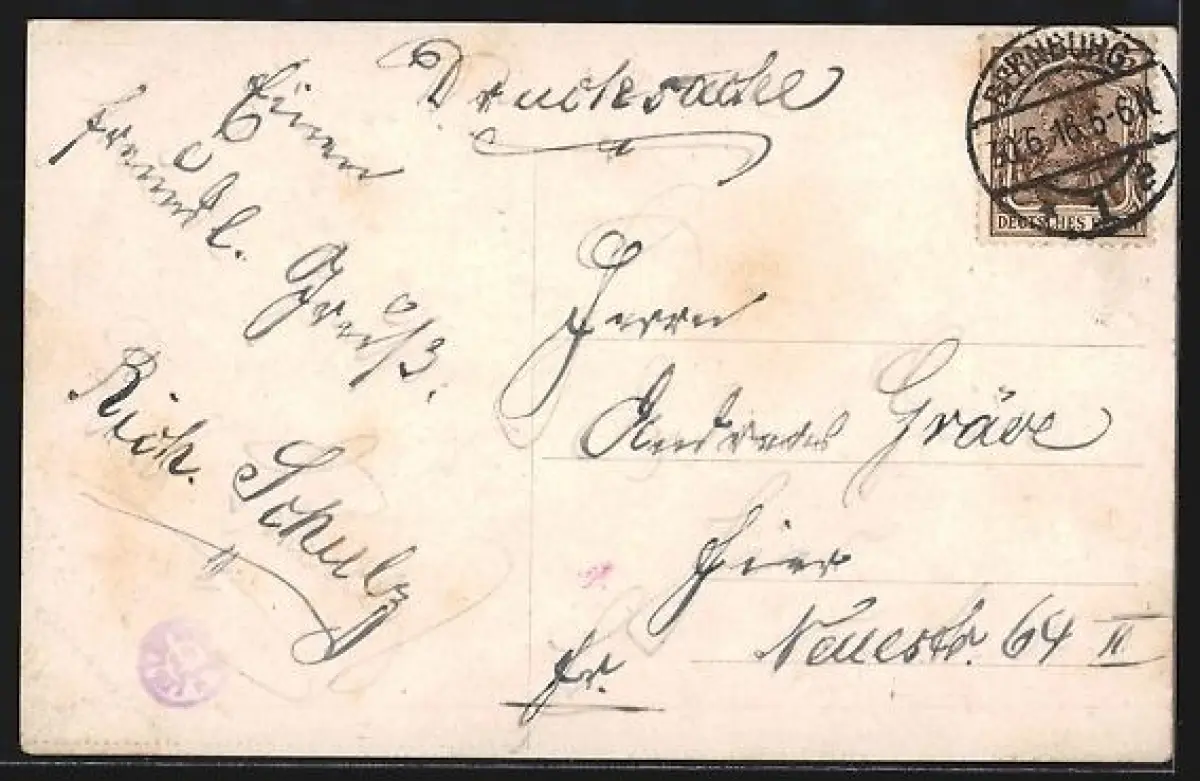 Drucksache
Einen
freundl.
Gruß.
Rich. Schulz
BERNBURG
30.6.16.5-6N
* 1 e
DEUTSCHES REICH
Herrn
Andreas Gräve
Hier
Neuestr. 64 II
fr.